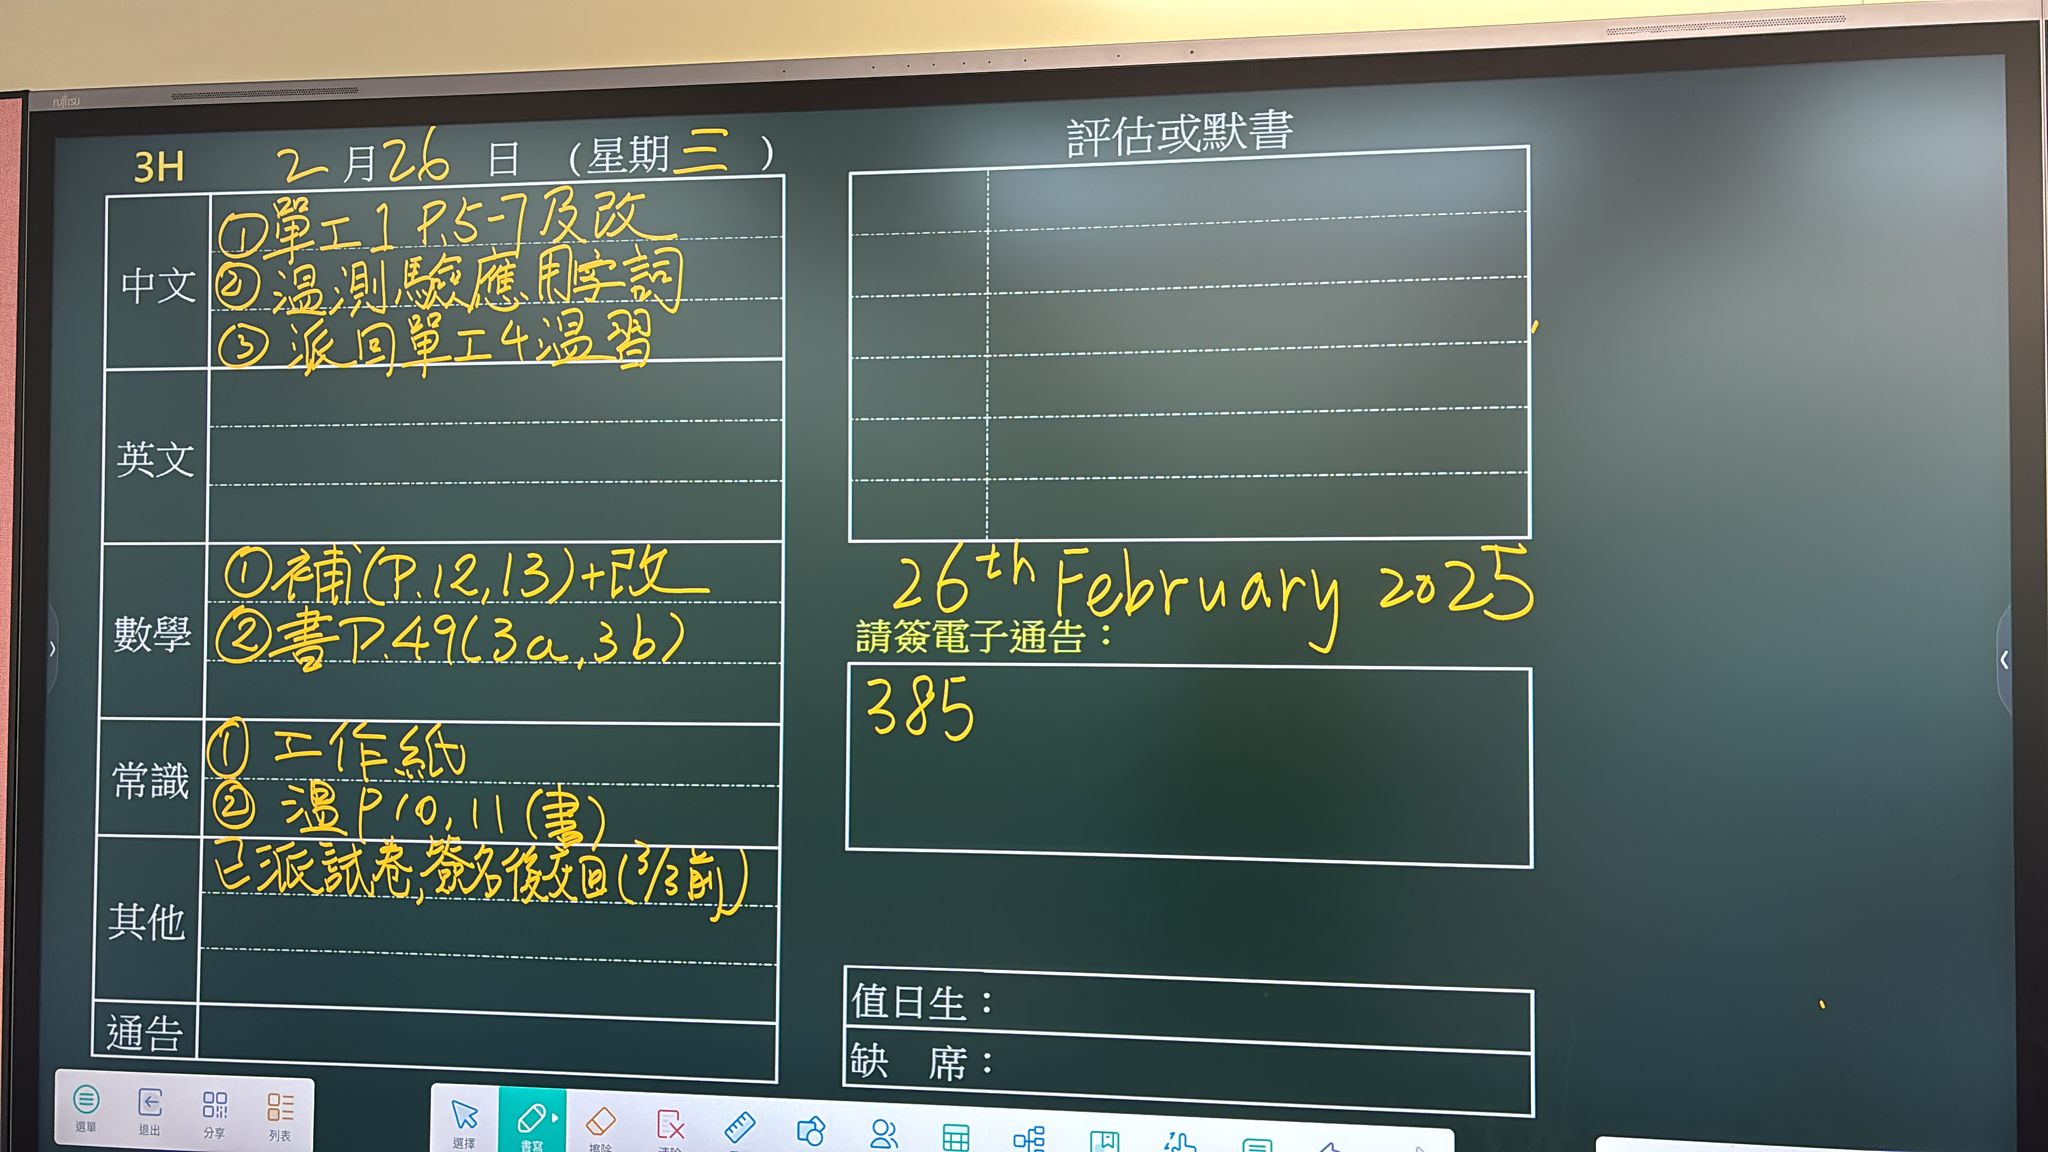 FUJITSU
3H 2月26日 (星期三)
中文
①單工1 P.5-7及改
②溫測驗應用字詞
③派回單工4溫習
英文
數學
①補(P.12,13)+改
②書P.49(3a,3b)
常識
①工作紙
②溫P10,11(書)
其他
已派試卷,簽名後交回(3/3前)
通告
評估或默書
26th February 2025
請簽電子通告：
385
值日生：
缺 席：
選單 退出 分享 列表 選擇 書寫 擦除 清除